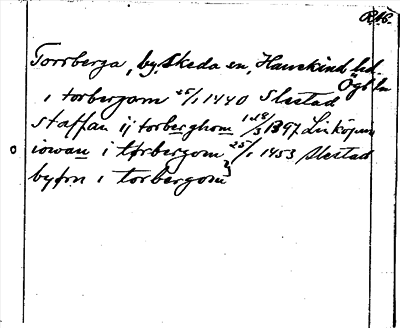 RAP.
Torrberga, by, Skeda sn, Hanekind hd.
Ögl ln
i torbergom 25/1 1440 Slestad
staffan ij torberghom 18/3 1397 Linköping
iowan i torbergom 25/1 1453 Slestad
byfrn i torbergom